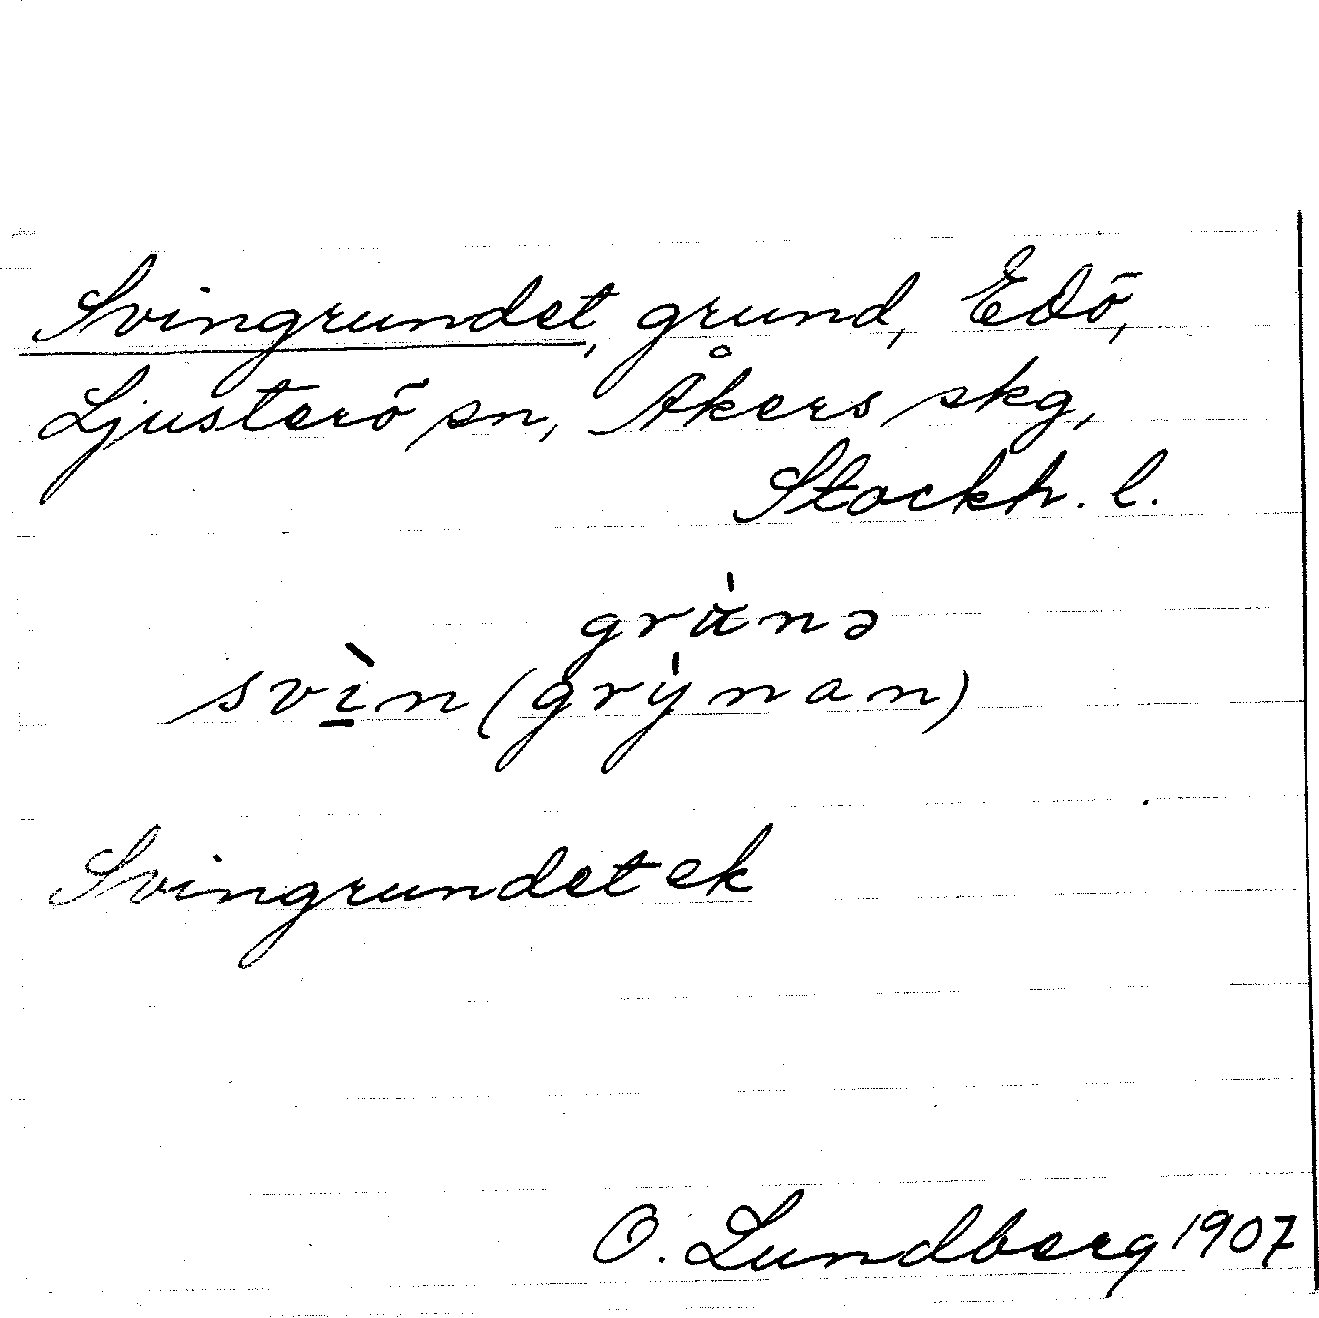 Svingrundet, grund, Edö,
Ljusterö sn, Åkers skg,
Stockh. l.
grànə
svìn (grỳnan)
Svingrundet ek
O. Lundberg 1907